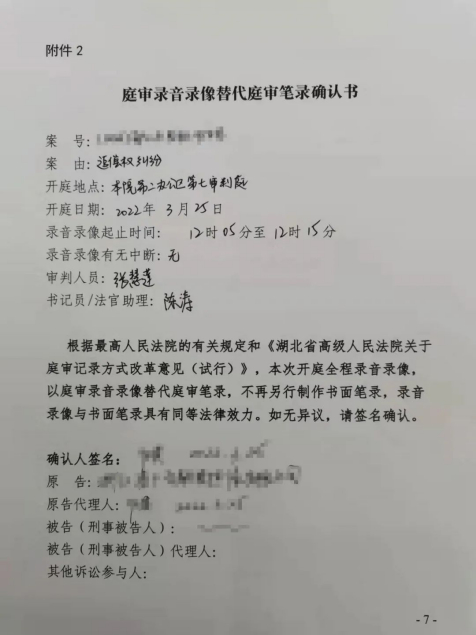 附件2
庭审录音录像替代庭审笔录确认书
案 号:
案 由: 追偿权纠纷
开庭地点: 本院第二办公区第七审判庭
开庭日期: 2022年 3月 25日
录音录像起止时间: 12时05分至12时15分
录音录像有无中断: 无
审判人员: 张慧莲
书记员/法官助理: 陈涛
根据最高人民法院的有关规定和《湖北省高级人民法院关于
庭审记录方式改革意见（试行）》，本次开庭全程录音录像，
以庭审录音录像替代庭审笔录，不再另行制作书面笔录，录音
录像与书面笔录具有同等法律效力。如无异议，请签名确认。
确认人签名:
原 告:
原告代理人:
被告（刑事被告人）:
被告（刑事被告人）代理人:
其他诉讼参与人:
- 7 -